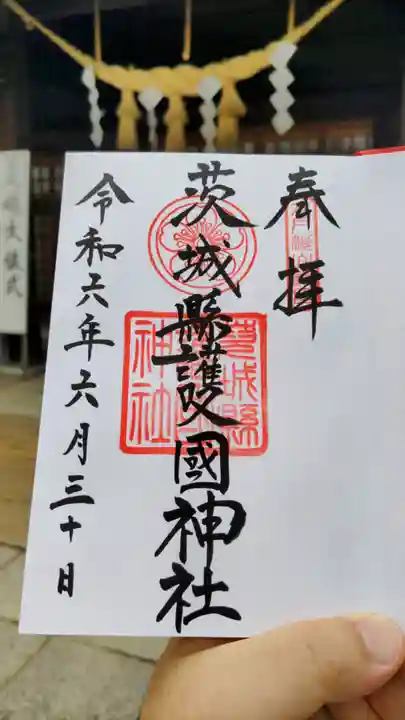 奉拝
茨城縣護國神社
令和六年六月三十日
茨城縣
神社